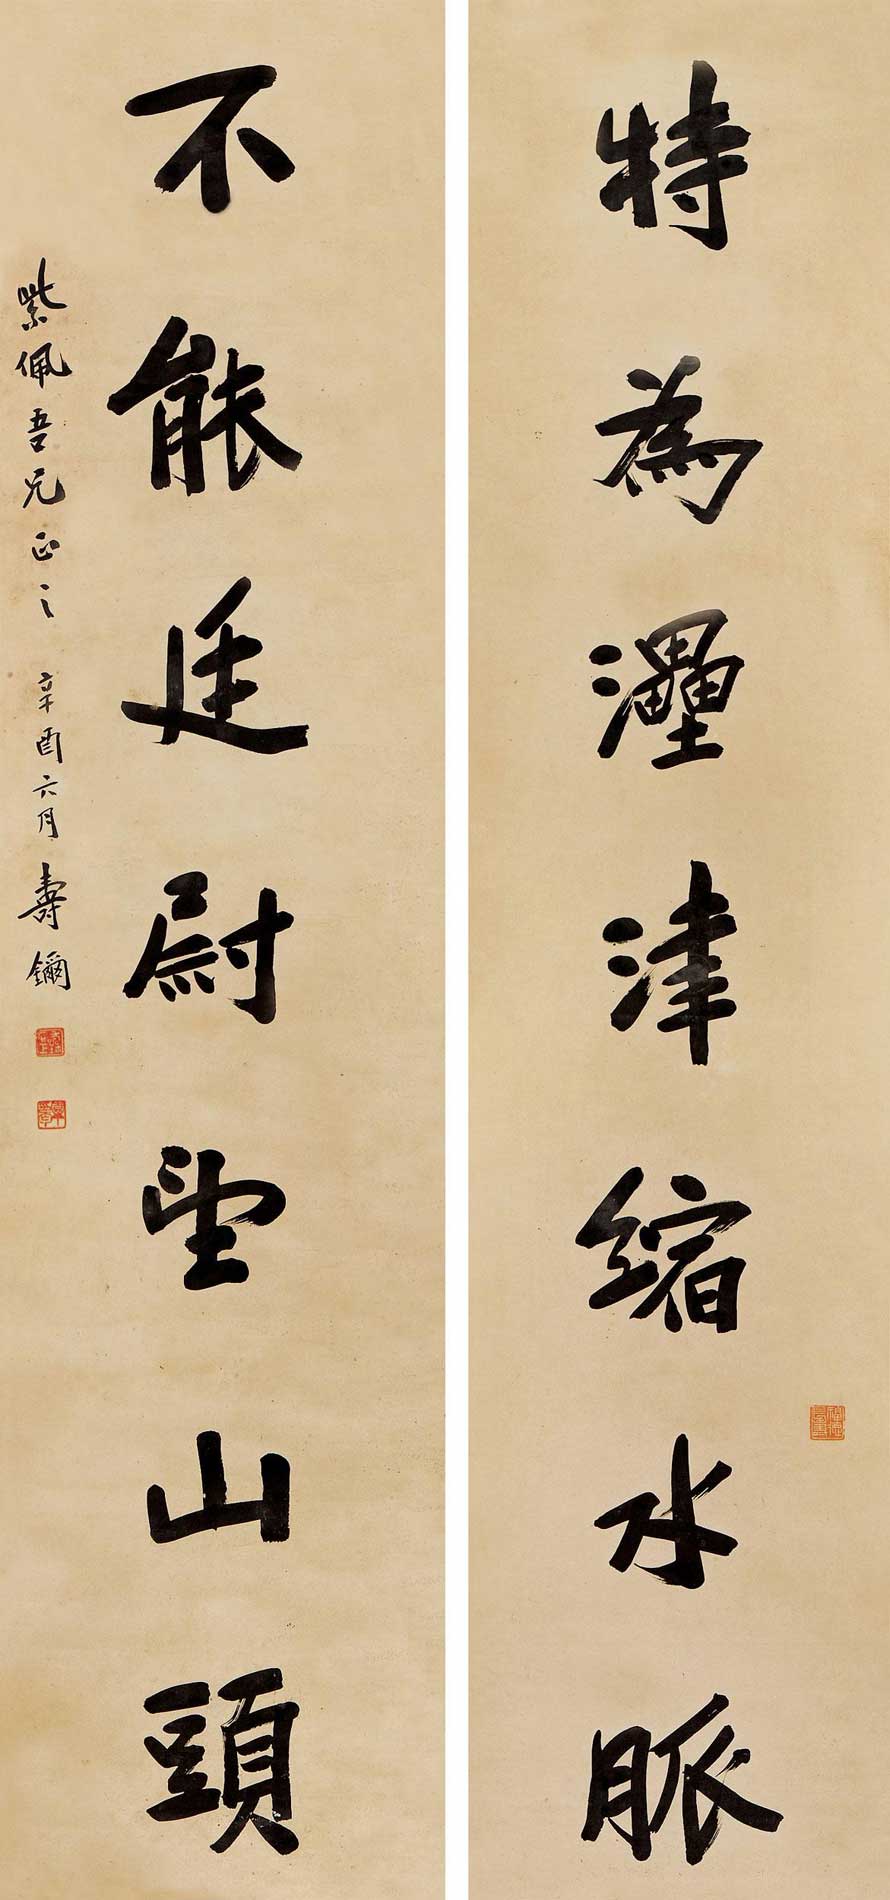 特為灅津縮水脈
不能廷尉望山頭
紫佩吾兄正之 辛酉六月 壽鑈